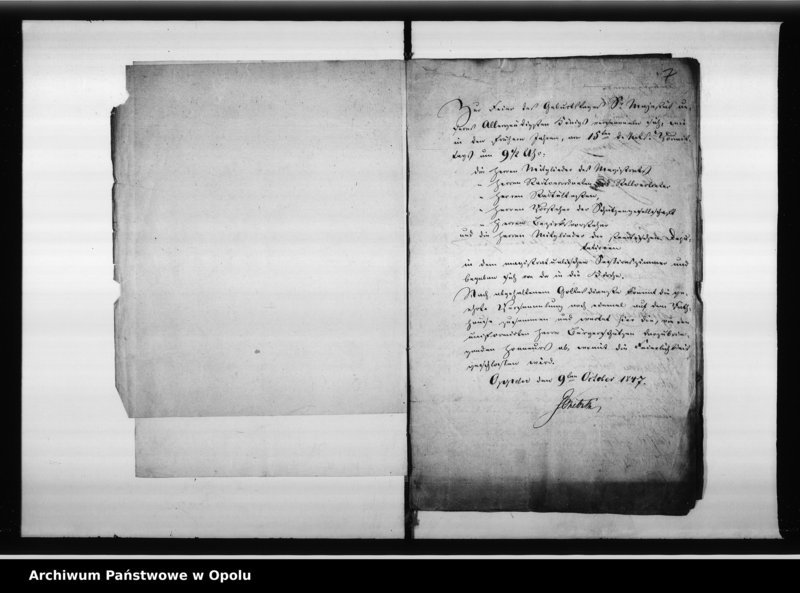 7
Zur Feier des Geburtstages Sr Majestät un-
seres Allergnädigsten Königs versammeln sich, wie
in den frühern Jahren, am 15ten d. Mts. Vormit-
tags um 9½ Uhr:
die Herren Mitglieder des Magistrats
" Herren Stadtverordneten und Stellvertreter
" Herren Stadtältesten,
" Herren Vorsteher der Schützengesellschaft
" Herren Bezirksvorsteher
und die Herren Mitglieder der städtischen Depu-
tationen
in dem magistratualischen Sessionszimmer und
begeben sich von da in die Kirche.
Nach abgehaltenem Gottesdienste kommt die ge-
ehrte Versammlung noch einmal auf dem Rath-
hause zusammen und wartet hier die, von den
uniformirten Herrn Bürgerschützen darzubrin-
genden Honneurs ab, womit die Feierlichkeit
geschlossen wird.
Oppeln den 9ten October 1847.
Archiwum Państwowe w Opolu